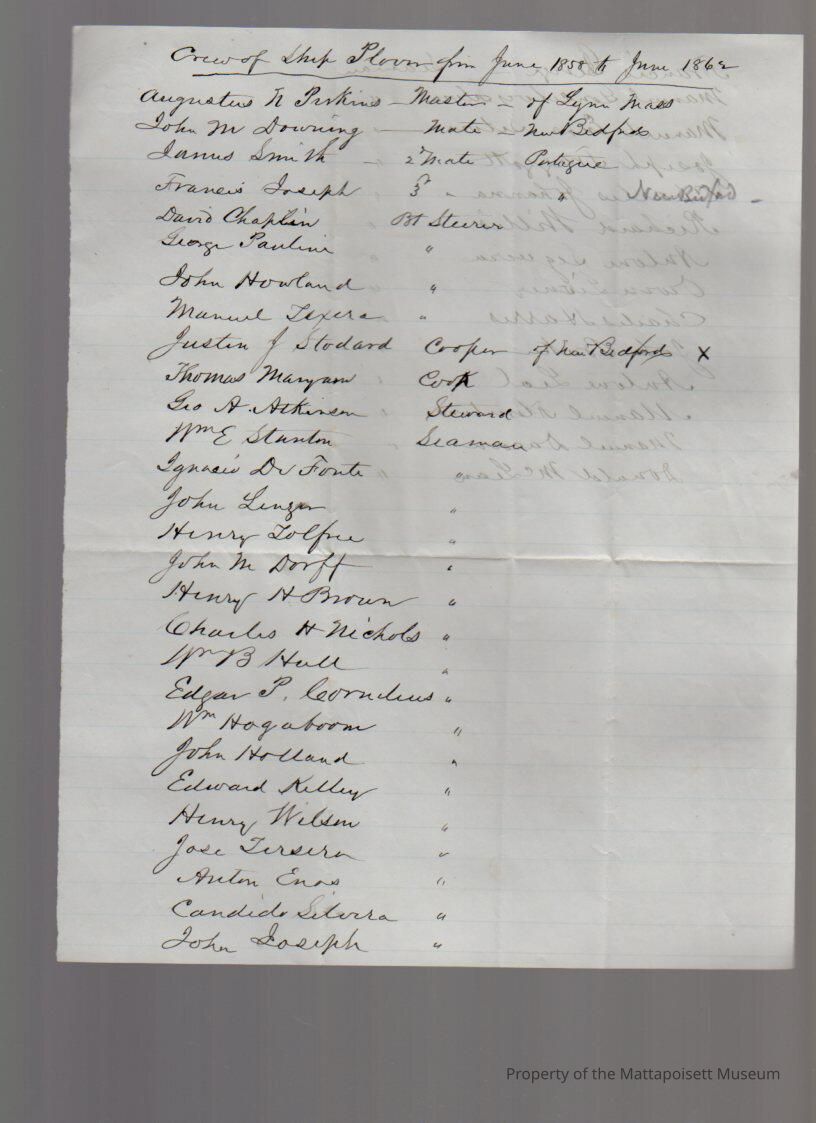 Crew of Ship Plover from June 1858 to June 1862
Augustus N Perkins - Master of Lynn Mass
John M Downing - Mate New Bedford
James Smith - 2d Mate Portugue
Francis Joseph 3d " " New Bedford -
David Chaplin Bt Steerer
George Pauline "
John Howland "
Manuel Texera "
Justin J Stodard Cooper of New Bedford X
Thomas Maryann Cook
Geo A. Atkinson Steward
Wm E Stanton Seaman
Ignacio De Fonte "
John "
Henry Tolfree "
John M Dorff "
Henry H Brown "
Charles H Nichols "
Wm B Hall "
Edgar P. Cornelius "
Wm Hogaboom "
John Holland "
Edward Kelley "
Henry Wilson "
Jose Tersera "
Anton Enos "
Candido Silvera "
John Joseph "
Property of the Mattapoisett Museum